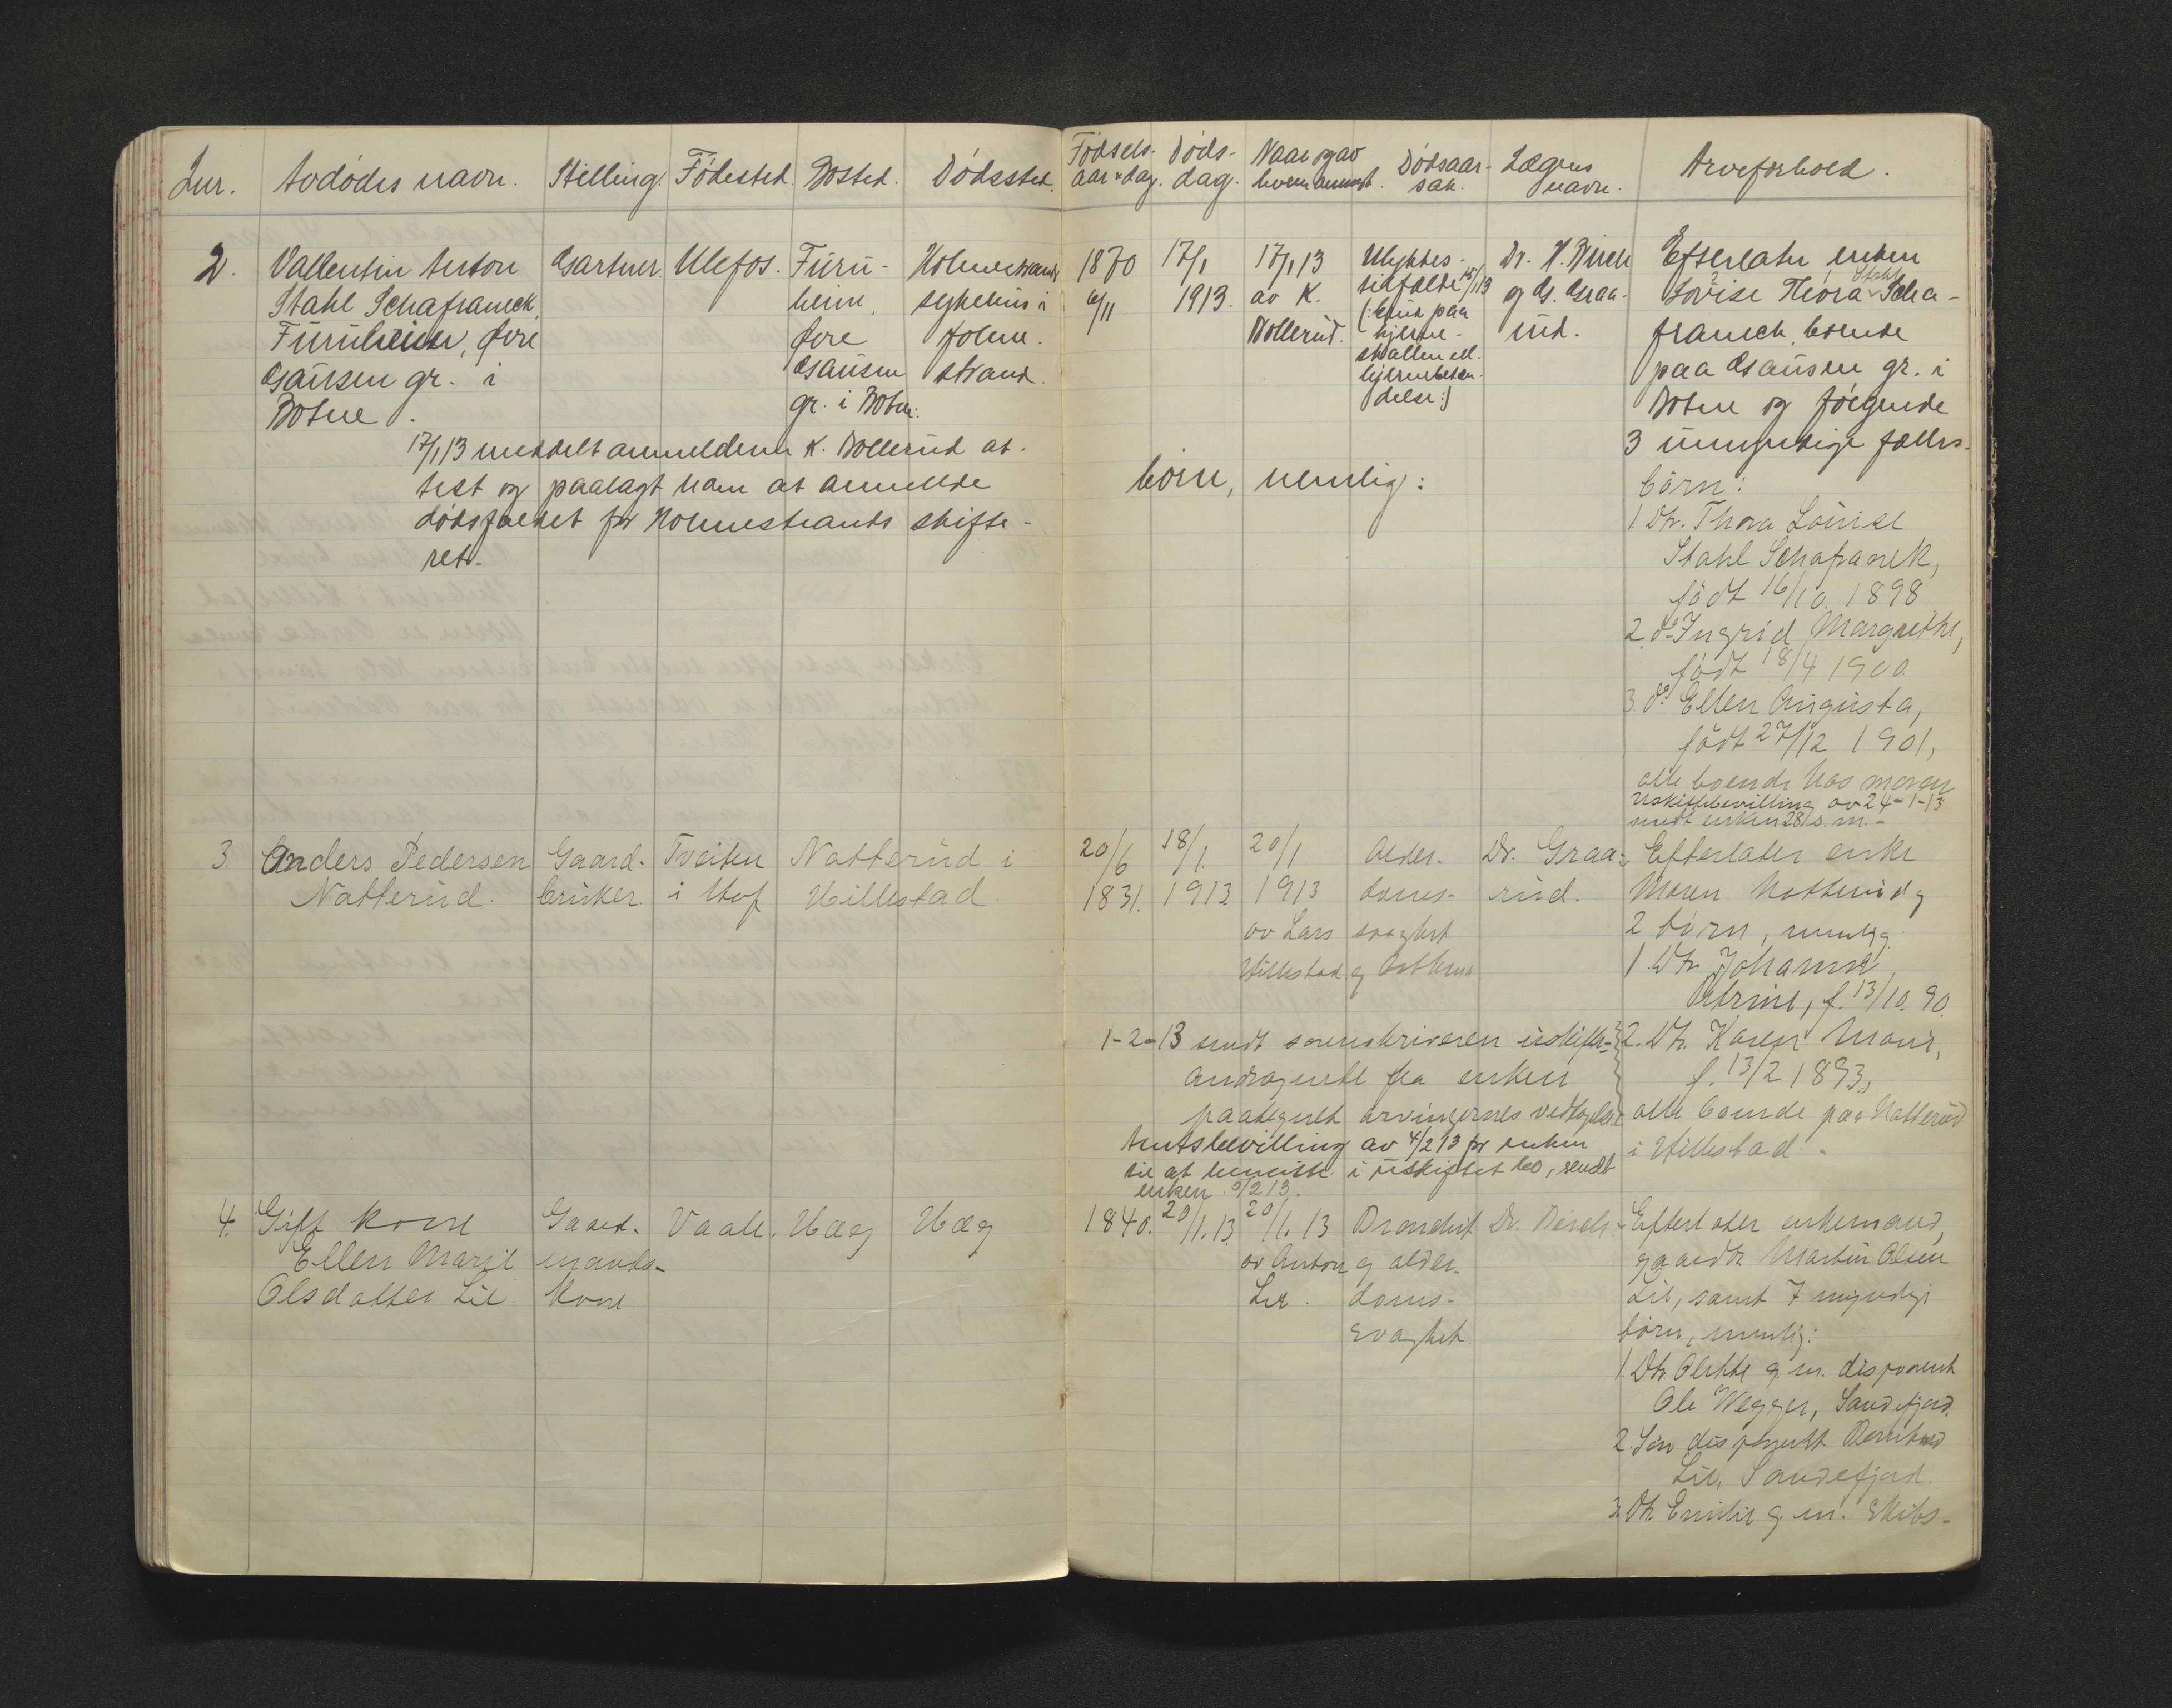 Lnr. Avdødes navn. Stilling. Fødested. Bosted. Dødssted.
Fødsels- aar & dag. Døds- dag. Naar og av hvem anmeldt. Dødsaar- sak. Lægens navn. Arveforhold.
2.
Vallentin Anton
Stahl Schafraneck,
Furuheim, Øvre
Gausen gr. i
Botne.
Gartner.
Ulefos.
Furu-
heim,
Øvre
Gausen
gr. i Botne.
Holmestrands
sykehus i
Holme-
strand.
17/1 13 meddelt anmelderen K. Bollerud at-
test og paalagt ham at anmelde
dødsfaldet for Holmestrands skifte-
ret.
1870
6/11
17/1
1913.
17/1 13
av K.
Bollerud.
Ulykkes-
tilfælde 15/1 13
(: brud paa
hjerne-
skallen ell.
hjernebetæn-
delse :)
Dr. H. Birch
og Dr. Graa-
rud.
Efterlater enken
Lovise Thora Stahl Scha-
franeck, boende
paa Gausen gr. i
Botne og følgende
3 umyndige fælles-
børn, nemlig:
børn:
1 Dtr. Thora Louise
Stahl Schafranek,
født 16/10 1898
2. do Ingrid Margrethe,
født 18/4 1900
3. do Ellen Augusta,
født 27/12 1901,
alle boende hos moren
Uskiftebevilling av 24-1-13
sendt enken 28/s. m.
3
Anders Pedersen
Natterud.
Gaard-
bruker
Tveiten
i Hof
Natterud i
Hillestad.
20/6
1831.
18/1.
1913
20/1
1913
av Lars
Hillestad
Alder-
doms-
svaghet
og Asthma
Dr. Graa-
rud.
Efterlater enke
Maren Natterud og
2 børn, nemlig
1. Dtr. Johanne
Petrine, f. 13/10. 90.
2. Dtr. Karen Marie,
f. 13/2 1893,
alle boende paa Natterud
i Hillestad.
1-2-13 sendt sorenskriveren uskifte-
andragende fra enken
paategnet arvingernes vedtagelse
Amtsbevilling av 4/2 13 for enken
til at hensitte i uskiftet bo, sendt
enken 9/2 13.
4.
Gift kone
Ellen Marie
Olsdatter Lie
Gaard-
mands-
kone
Vaale.
Hæg
Hæg
1840.
20/1. 13.
20/1. 13
av Anton
Lie.
Bronchit
og alder-
doms-
svaghet
Dr. Birch.
Efterlater enkemand,
gaardbr. Martin Olsen
Lie, samt 7 myndige
børn, nemlig:
1. Dtr. Olette g. m. disponent
Ole Wegger, Sandefjord.
2. Søn disponent Bernhard
Lie, Sandefjord.
3. Dtr. Emilie g. m. Skibs-